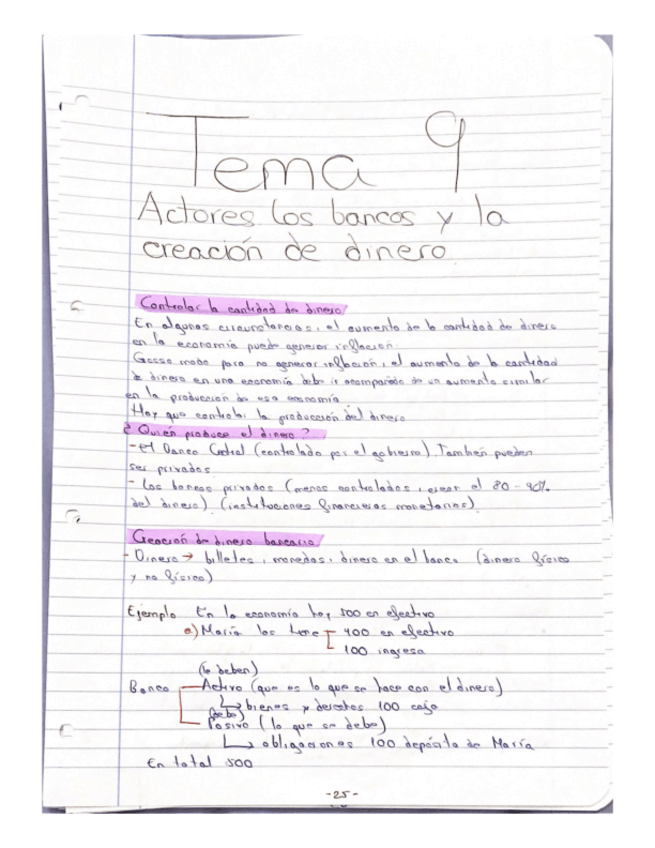 Tema 9
Actores los bancos y la
creación de dinero
Controlar la cantidad de dinero
En algunas circunstancias, el aumento de la cantidad de dinero
en la economía puede generar inflación.
Grosso modo para no generar inflación, el aumento de la cantidad
de dinero en una economía debe ir acompañado de un aumento similar
en la producción de esa economía
Hay que controlar la producción del dinero
¿Quién produce el dinero?
- El Banco Central (controlado por el gobierno). También pueden
ser privados
- Los bancos privados (menos controlados, crean el 80-90%
del dinero) (instituciones financieras monetarias)
Creación de dinero bancario
- Dinero → billetes, monedas, dinero en el banco (dinero físico
y no físico)
Ejemplo En la economía hay 500 en efectivo
a) María los tiene 400 en efectivo
100 ingresa
(le deben)
Banco Activo (que es lo que se hace con el dinero)
bienes y derechos 100 caja
(debe)
Pasivo (lo que se debe)
obligaciones 100 depósito de María
En total 500
-25-